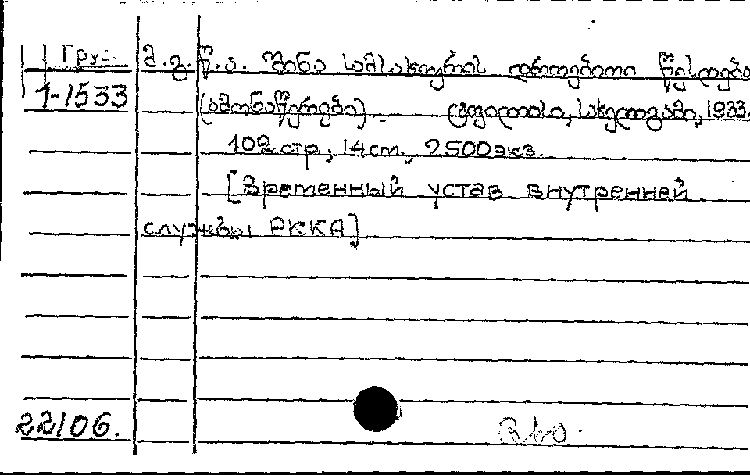 Груз. მ.გ.წ.ა. შინა სამსახურის დროებითი წესდება
1-1533 (ამონაწერები). ტფილისი, სახელგამი, 1933.
102 стр, 14 cm., 2500 экз.
[Временный устав внутренней
службы РККА]
22106.